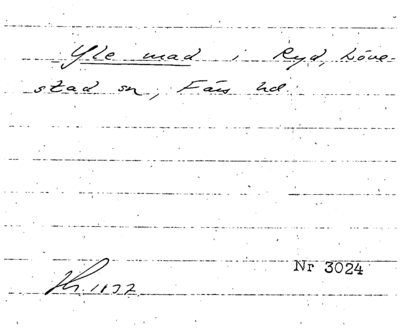 Yle mad i Ryd, Löve-
stad sn, Färs hd.
Nr 3024
1937